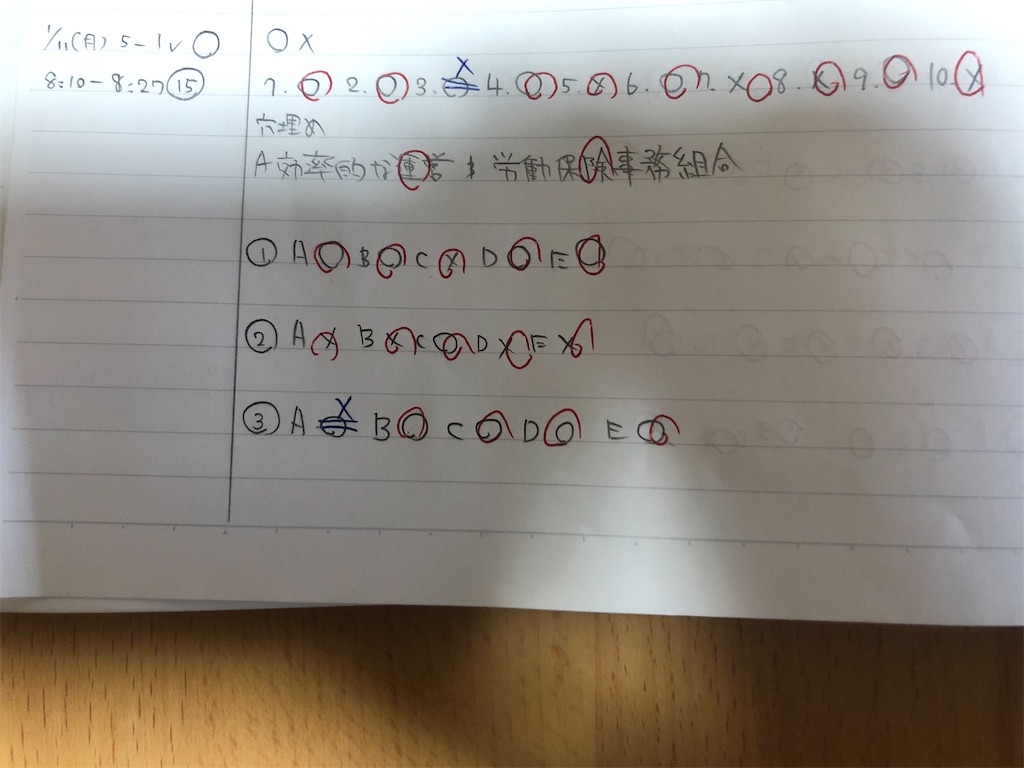 1/11(月) 5-1✓ ○
8:10-8:27 ⑮
○ X
1. ○ 2. ○ 3. X 4. ○ 5. X 6. ○ 7. X 8. X 9. ○ 10. X
穴埋め
A 効率的な運営 B 労働保険事務組合
① A ○ B ○ C X D ○ E ○
② A X B X C ○ D X E X
③ A X B ○ C ○ D ○ E ○